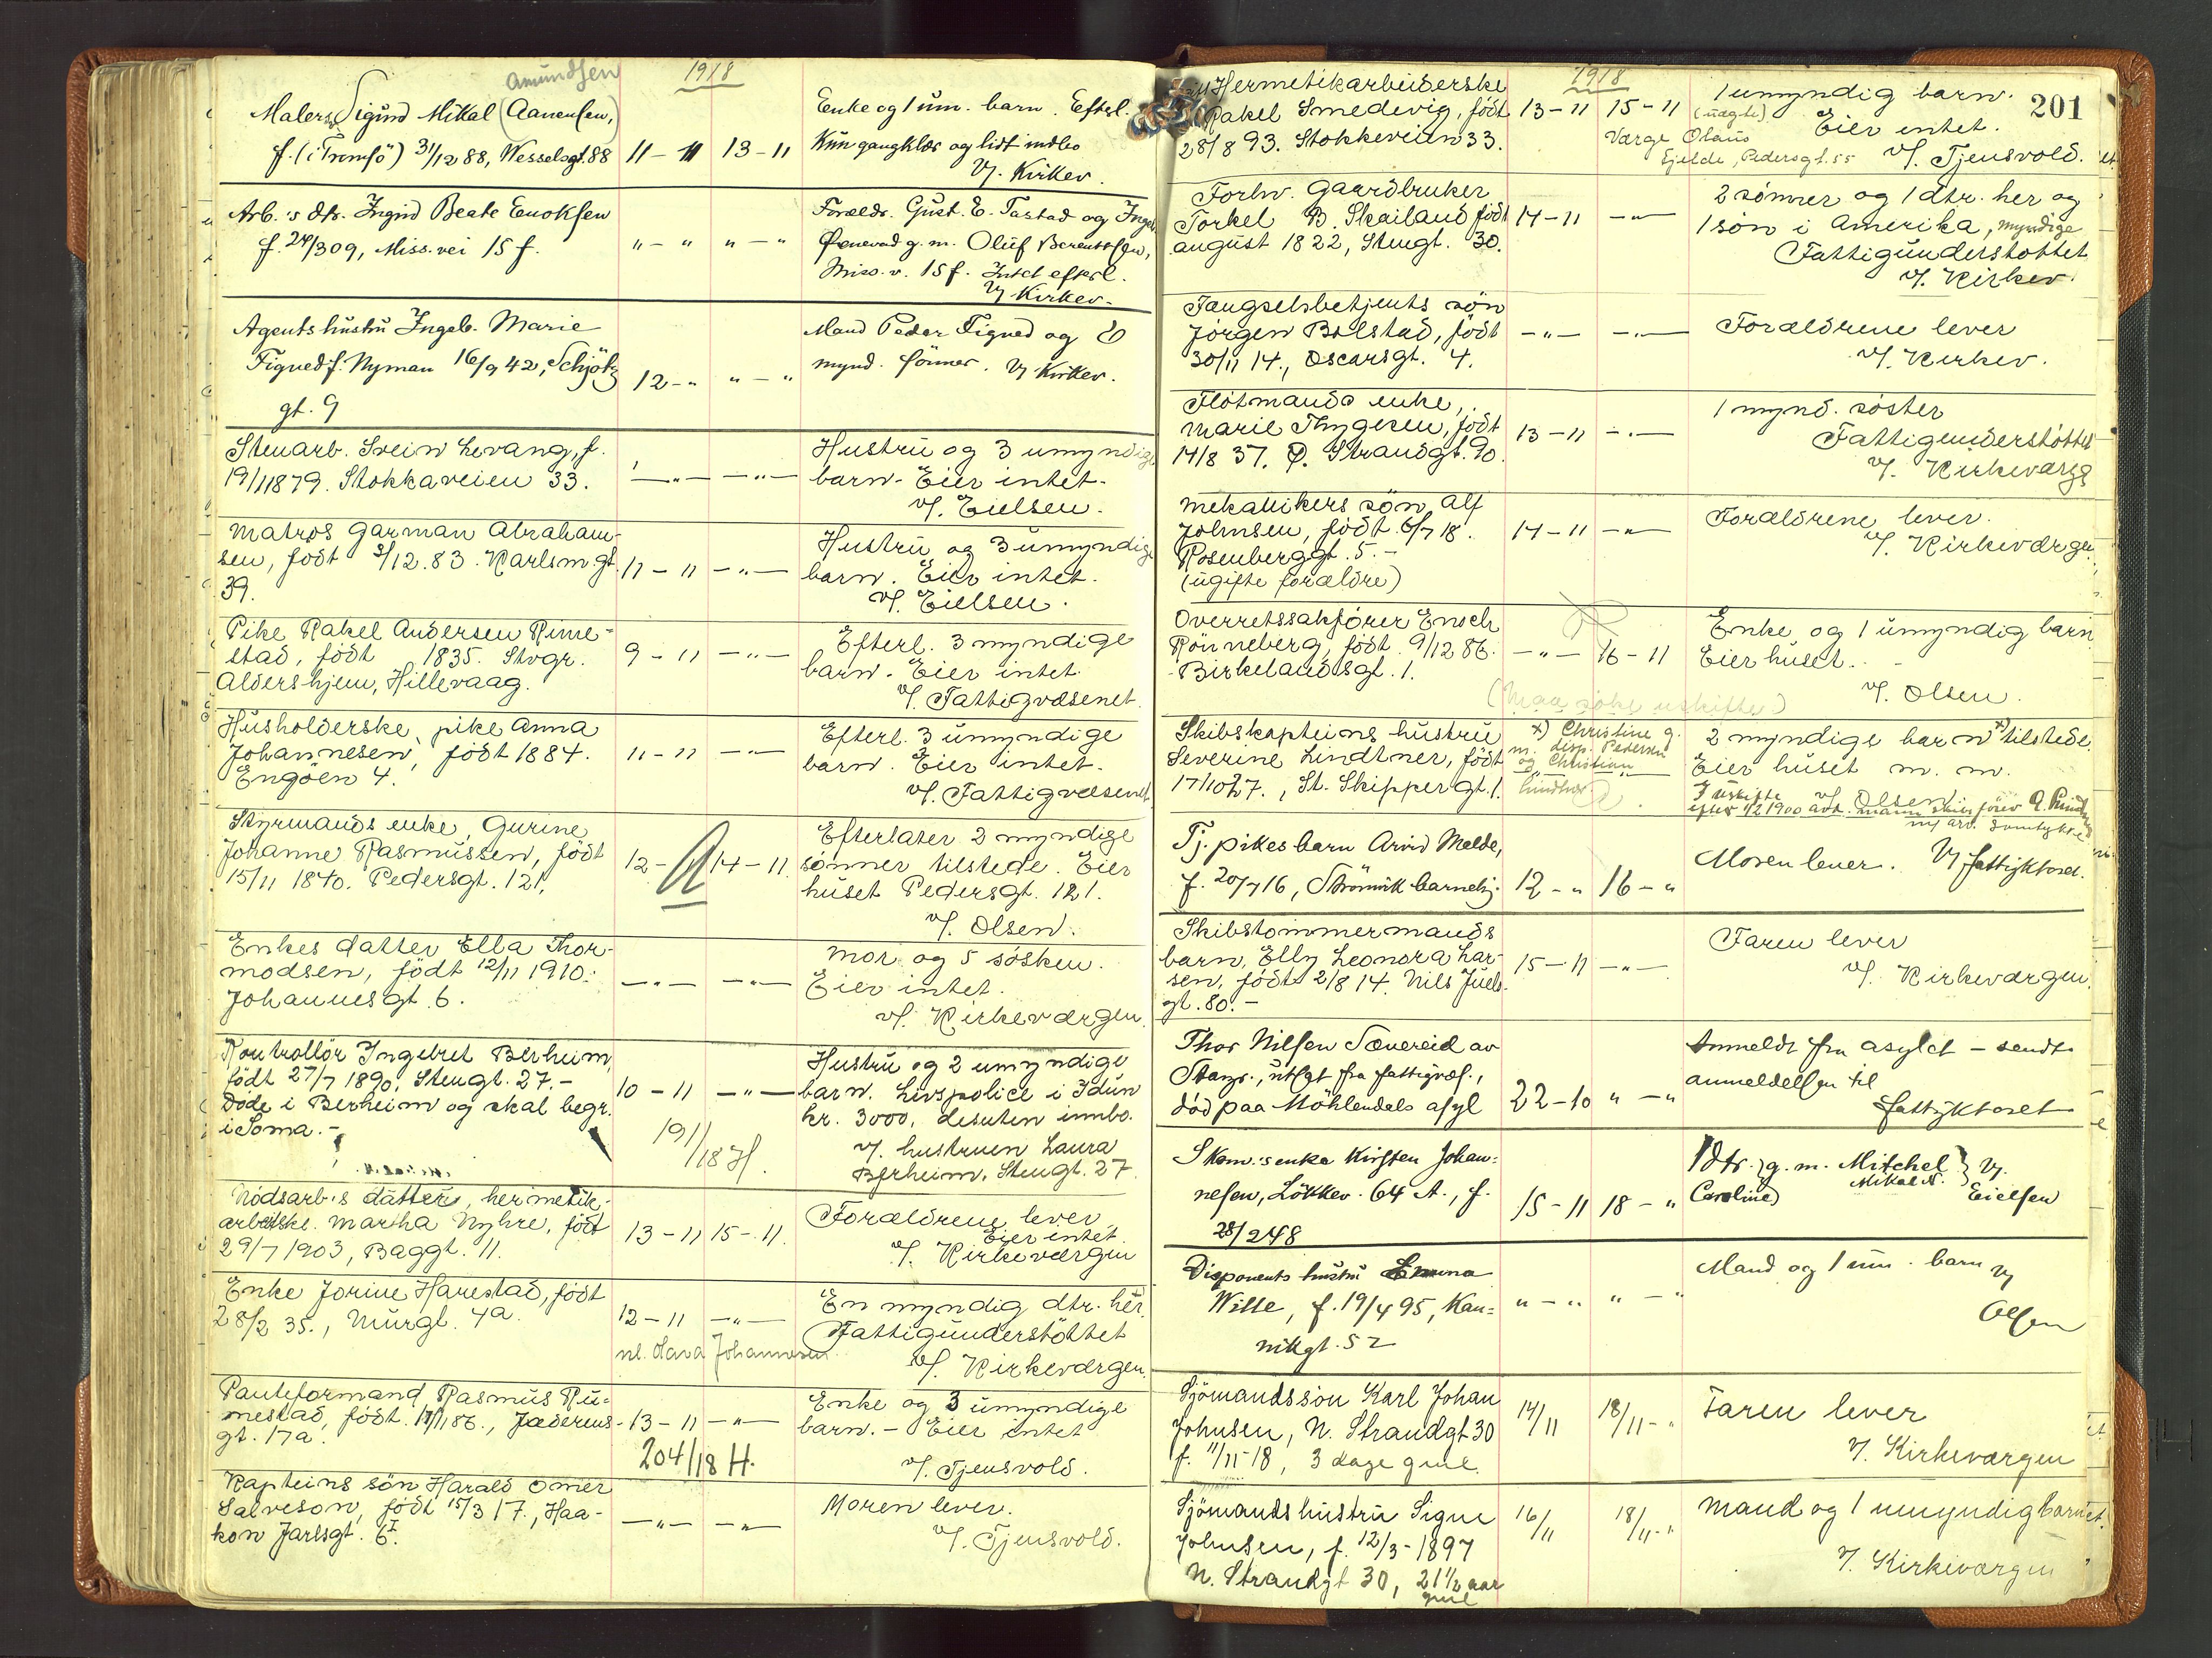 Amundsen
1918
Malers Sigurd Mikal (Aanensen,)
f. (i Tromsö) 31/12 88, Wesselsgt. 88
11 - 11
13 - 11
Enke og 1 um. barn. Efterl.
Kun gangklær og lidt indbo
V/. Kirkev.
Arb.'s dtr. Ingrid Beate Enoksen
f. 24/3 09, Miss. vei 15 f.
" - "
" - "
Foreldr. Gust. E. Tastad og
g. m. Oluf Berentsen,
Miss. v. 15 f. Intet efterl.
V/ Kirkev.
Agents hustru Ingeb. Marie
Tigved f. Nyman 16/9 42, Schjötz
gt. 9
12 - "
" - "
Mand Peder Tigved og
mynd. sönner. V/ Kirkev.
Stenarb. Svein Levang, f.
19/1 1879. Stokkaveien 33.
- " -
- " -
Hustru og 3 umyndige
barn. Eier intet.
v/. Eielsen.
Matros Garman Abraham-
sen, født 3/12.83. Karlsm.gt.
39.
11 - 11
- " -
Hustru og 3 umyndige
barn. Eier intet.
v/. Eielsen.
Pike Rakel Andersen Rime-
stad, født 1835. Stvgr.
Aldershjem, Hillevaag.
9 - 11
- " -
Efterl. 3 myndige
barn. Eier intet.
v/. Fattigvæsenet.
Husholderske, pike Anna
Johannesen, født 1884.
Engöen 4.
11 - 11
- " -
Efterl. 3 umyndige
barn. Eier intet.
v/. Fattigvæsenet
Styrmands enke, Gurine
Johanne Rasmussen, født
15/11 1840. Pedersgt. 121,
12 -
14 - 11
Efterlater 2 myndige
sønner tilstede. Eier
huset Pedersgt. 121.
v/. Olsen.
Enkes datter Ella Thor-
modsen, født 12/11 1910.
Johannesgt. 6.
- " -
- " -
Mor og 5 søsken.
Eier intet.
v/. Kirkevergen.
Kontrollör Ingebret Berheim,
født 27/7 1890, Stengt. 27. -
Döde i Berheim og skal begr.
i Soma. -
10 - 11
- " -
191/18 H.
Hustru og 2 umyndige
barn. Livspolice i Idun
kr. 3000, desuten innbo.
v/. hustruen Laura
Berheim, Stengt. 27.
Nödsarb.s datter, hermetik-
arbeiderske. Martha Nyhre, født
29/7 1903, Baggt. 11.
13 - 11
15 - 11.
Forældrene lever
Eier intet.
v/. Kirkeværgen
Enke Jorine Harestad, født
28/2 35., Murgt. 4a.
12 - 11
- " -
nl. Hava Johannesen
En myndig dtr. her.
Fattigunderstöttet
v/. Kirkeværgen.
Rasmus Ri-
mestad, født. 17/1 86., Jæderens-
gt. 17a.
13 - 11
- " -
204/18 H.
Enke og 3 umyndige
barn. - Eier intet
v/. Tjensvold.
Kapteins sön Harald Omer
Salveson, født 15/3 17., Haa-
kon Jarlsgt. 6 I.
- " -
- " -
Moren lever.
v/. Tjensvold.
1918
201
Hermetikarbeiderske
Rakel Smedevig, født
28/8 93. Stokkeveien 33.
13 - 11
15 - 11
1 umyndig barn.
(uægte). Eier intet.
Værge Olaus
Gjelde, Pedersgt. 55 v/. Tjensvold.
Forhv. Gaardbruker
Torkel B. Skailand født
august 1822, Stengt. 30.
14 - 11
- " -
2 sönner og 1 dtr. her og
1 sön i Amerika, myndige
Fattigunderstottet
v/. Kirkev.
Fængselsbetjents sön
Jörgen Bolstad, født
30/11 14., Oscarsgt. 4.
- " -
- " -
Forældrene lever
v/. Kirkev.
Flötmands enke,
Marie Thygesen, født
14/8 37. Ø. Strandgt. 90.
13 - 11
- " -
1 mynd. söster
Fattigunderstöttet
v/. Kirkeværg
Mekanikers sön Alf
Johnsen, født 6/7 18.
Rosenberggt. 5. -
(ugifte forældre)
14 - 11
- " -
Forældrene lever.
v/. Kirkeværgen.
Overretssakförer Enoch
Rönneberg, født 9/12 86.
Birkelandsgt. 1.
- " -
16 - 11
Enke og 1 umyndig barn
Eier huset.
v/. Olsen.
(Maa söke uskifte)
Skibskapteins hustru
Severine Lindtner, født
17/10 27., St. Skippergt. 1.
x) Christine g.
m. disp. Pedersen
og Christian
2 myndige barn x) tilstede.
Eier huset m. m.
I uskifte v/. Olsen.
m/ arv. samtykke
Tj. pikes barn Arvid Melde,
f. 20/7 16, Strömvik barnehj.
12 - "
16 - "
Moren lever. V/ fattigktoret.
Skibstömmermands
barn, Elly Leonora Lar-
sen, født 2/8 14. Nils Juels-
gt. 80. -
15 - 11
- " -
Faren lever
v/. Kirkeværgen.
Thor Nilsen Sævereid av
Stavgr., utsgt fra fattigvæs.,
död paa Möhlendals asyl
22 - 10
" - "
Anmeldt fra asylet - sendt
anmeldelsen til
fattigktoret
Skom.s enke Kirsten Johan=
nesen, Lökkev. 64 A., f.
28/2 48
15 - 11
18 - "
1 dtr. g. m. Mitchel
Mikal N.
Caroline
V/.
Eielsen
Disponents hustru Emma
Wille, f. 19/4 95, Kan=
nikgt. 52
" - "
" - "
Mand og 1 um. barn V/
Olsen
Sjömandssön Karl Johan
Johnsen, N. Strandgt 30
f. 11/11 - 18, 3 dage gml.
14/11
18/11 - "
Faren lever
V/. Kirkeværgen
Sjömands hustru Signe
Johnsen, f. 12/3 - 1897
N. Strandgt 30, 21 1/2 aar
gml
16/11
18/11 - "
Mand og 1 umyndig barn
V/. Kirkeværgen